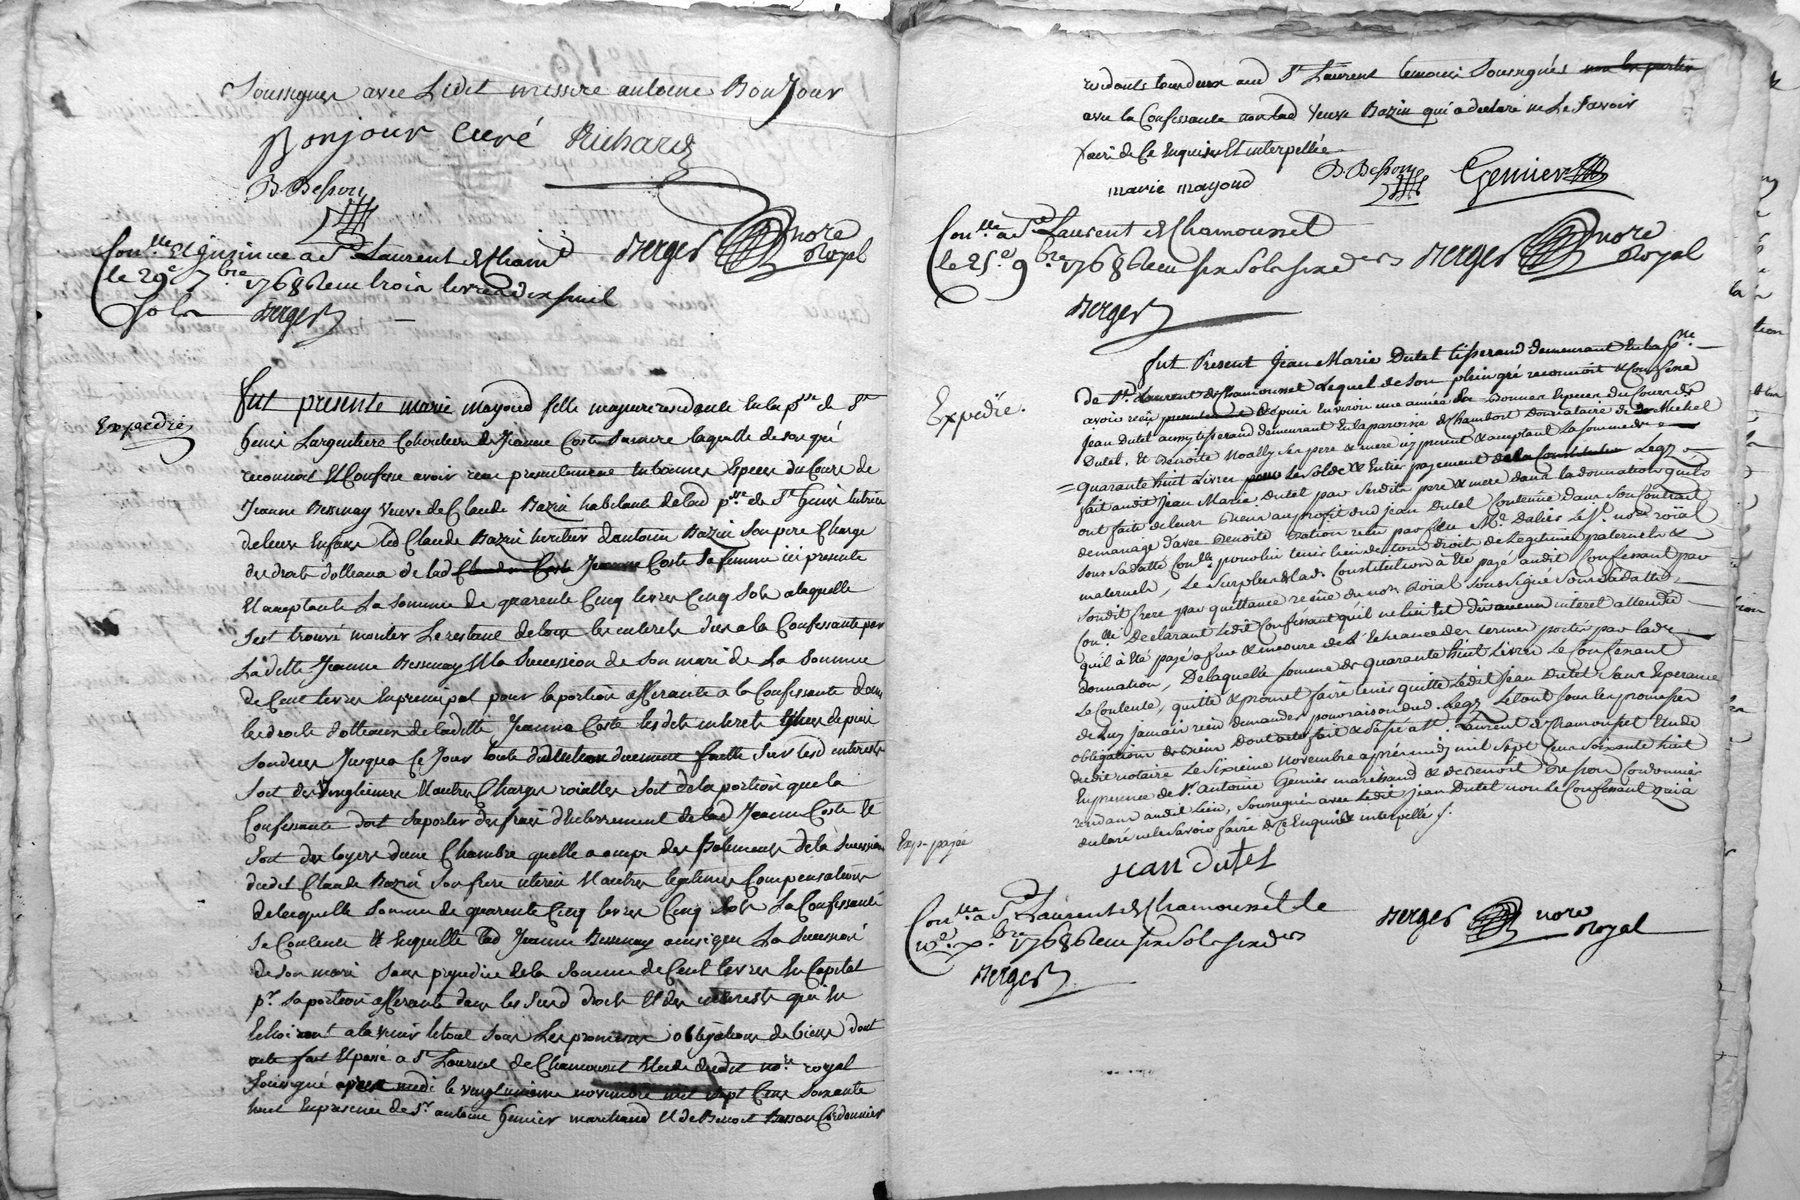 Soussignes avec Ledit messire antoine Bonjour
Bonjour curé Richard
B Besson
Con.lle Et Insinué a St Laurent de Cham.t
le 29e 7bre 1768 Receu trois livres dix huit
Sols Berger
Berger nore Royal
Expediée
fut presente marie mayoud fille majeure residante en la p.sse de St
Genis Largentiere Cohéritiere de Jeanne Coste Sa mere laquelle de son gré
reconnoit Et Confesse avoir receu presentement en bonnes Especes du Cours de
Jeanne Bessenay veuve de Claude Bazin habitante de lad p.sse de St Genis tutrice
de leurs Enfans led Claude Bazin heritier d'antoine Bazin Son pere Charge
des droits dotteaux de lad Claudine Coste Jeanne Coste Sa femme ici presente
Et acceptante La Somme de quarente Cinq livres Cinq Sols a laquelle
s'est trouvé monter Le restant de tous les interets dus a la Confessante par
Laditte Jeanne Bessenay Et la Succession de Son mari de La Somme
de Cent livres En principal pour la portion afferante a la Confessante dans
les droits dotteaux de laditte Jeanne Coste lesdits interets depuis
Son deces Jusqua Ce Jour toute deduction duement faitte Sur lesd interets
Soit des vingtiemes Et autres Charges roialles Soit de la portion que la
Confessante doit Suporter des frais d'Enterrement de lad Jeanne Coste Et
Soit des loyers dune Chambre quelle a occupé des Batimens de la Succession
dudit Claude Bazin Son frere uterin Et autres legitimes Compensations
de laquelle Somme de quarente Cinq livres Cinq Sols La Confessante
Se Contente Et En quitte lad Jeanne Bessenay ainsi que La Succession
de Son mari Sans prejudice de la Somme de Cent livres En Capital
p.r Sa portion afferante dans les Susd droits Et des interets qui En
Echoiront a la venir le tout Sous Les promesses obligations de biens dont
acte fait Et passé a St Laurent de Chamousset Etude dudit no.re royal
Soussigné apres midi le vingtieme novembre mil Sept Cens Soixante
huit En presence de Sr antoine Genier marchand Et de Benoit Besson Cordonnier
residants tous deux aud St Laurent temoins Soussignés non les parties
avec la Confessante non lad veuve Bazin qui a declaré ne Le Savoir
faire de Ce Enquises Et interpellée
marie mayoud B Besson Genier
Con.lle a St Laurent de Chamousset
le 25e 9bre 1768 Receu Six Sols Six d.ers Berger nore Royal
Berger
Expediée.
fut Present Jean Marie Dutel tisserand demeurant en la p.sse
de St Laurent de Chamousset Lequel de Son plein gré reconnoit & Confesse
avoir reçu presentement & depuis Environ une année En Bonnes Especes du Cours de
Jean Dutel aussy tisserand demeurant En la paroisse de Chambost Donataire de Michel
Dutel, Et Benoite Noally Ses pere & mere icy present & acceptant La Somme de
quarante huit Livres pour Le Solde & Entier payement de la Constitution Legz
fait audit Jean Marie Dutel par Sesdits pere & mere dans la donnation quils
ont faite de leurs Biens au profit dud Jean Dutel Contenue dans Son Contrait
de mariage d'avec Benoite Bration reçu par feu Me Dalier Le Vt nore royal
Sous Sa datte Con.lle pour lui tenir lieu de tous droits de Legitime paternels &
maternels, Le Surplus de lad. Constitution a Eté payé audit Confessant par
Sondit frere par quittance reçue du nore Roïal Soussigné Sous Sa datte
Con.lle Declarant Ledit Confessant qu'il ne lui Est du aucun interet attendu
qu'il a Eté payé a fur & mesure de L'Echeance des termes portés par lade
donnation, De laquelle Somme de quarante huit Livres Le Confessant
Se Contente, quitte & promet faire tenir quitte Ledit Jean Dutel Sans Esperance
de luy Jamais rien demander pour raison dud. Legz Le tout Sous les promesses
obligation de Biens Dont acte fait & passé a St. Laurent de Chamousset Etude
dudit notaire Le Sixieme Novembre apres midy mil Sept Cens Soixante huit
En presence de Sr. Antoine Genier marchand & de Benoit Besson Cordonnier
residans audit Lieu, Soussignés avec Ledit Jean Dutel non Le Confessant qui a
declaré ne le Savoir faire de Ce Enquis & interpellé /.
payé
Jean Dutel
Con.lle a St Laurent de Chamousset le
10e xbre 1768 Receu Six Sols Six d.ers
Berger nore Royal
Berger